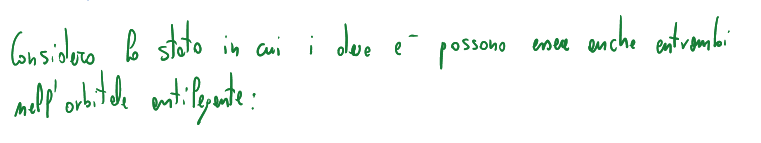 Considero lo stato in cui i due e⁻ possono essere anche entrambi
nell'orbitale antilegante: